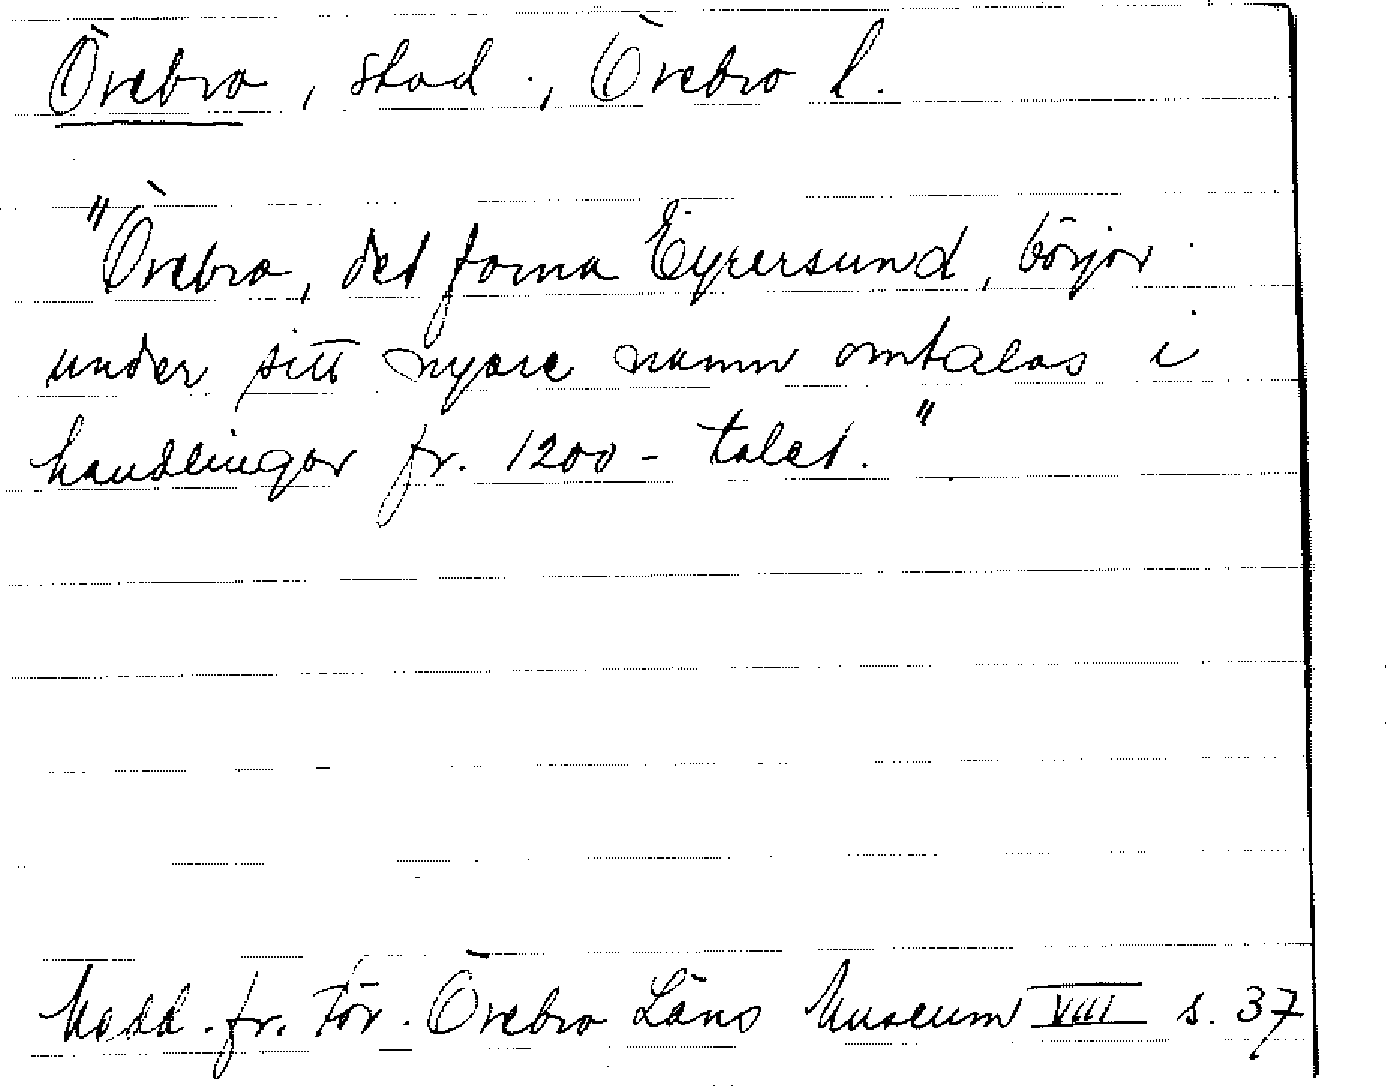 Örebro, stad., Örebro l.
"Örebro, det forna Eyrersund, börjar
under sitt nyare namn omtalas i
handlingar fr. 1200-talet."
Medd. fr. För. Örebro Läns Museum VIII s. 37